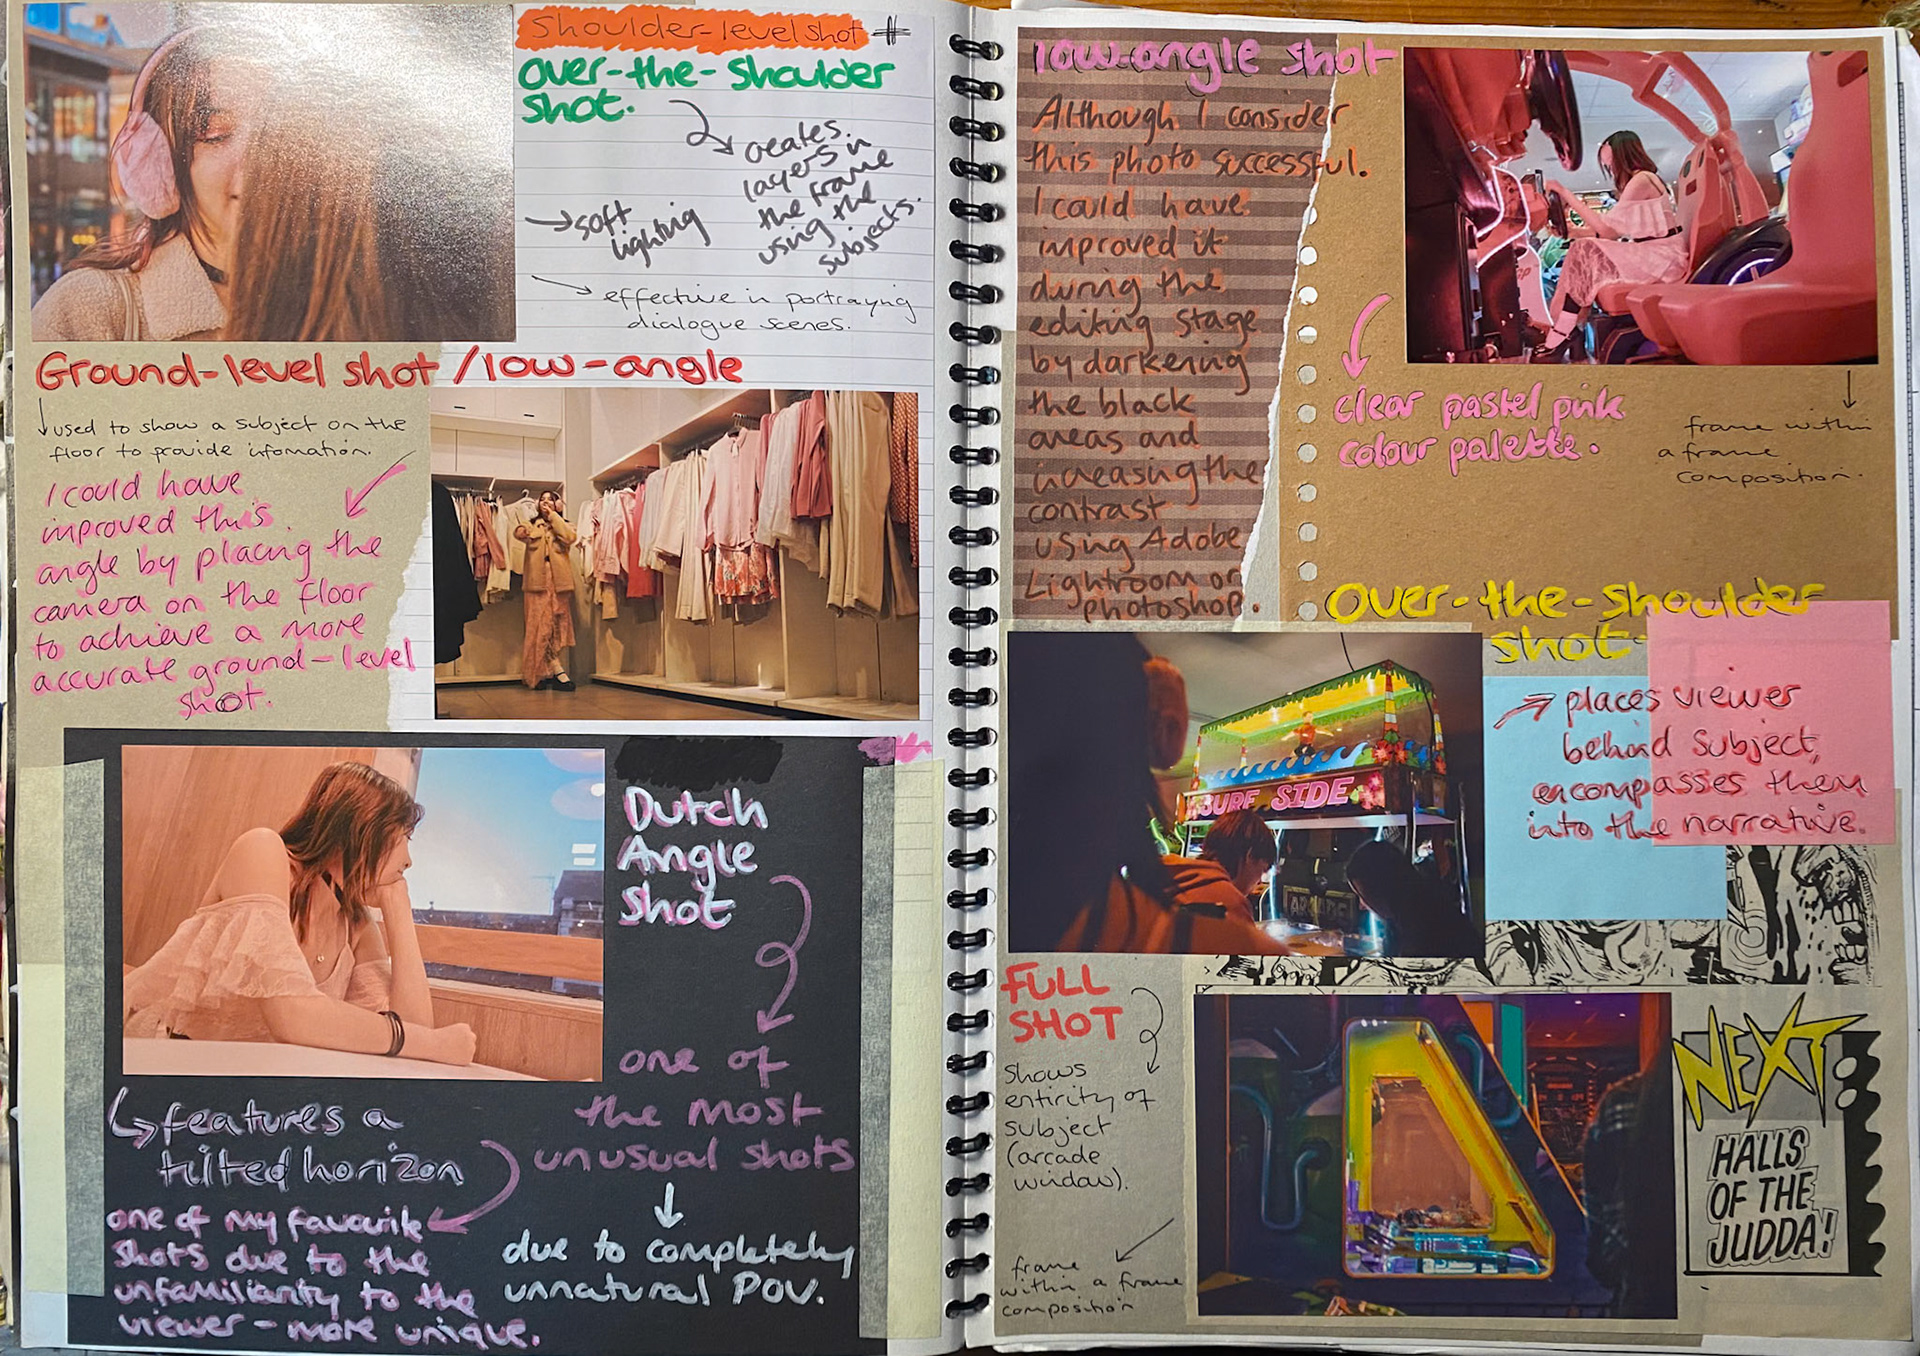 Shoulder-level shot #
Over-the-Shoulder
Shot.
creates
layers in
the frame
using the
subjects.
soft
lighting
effective in portraying
dialogue scenes.
Ground-level shot / low-angle
used to show a subject on the
floor to provide infomation.
I could have
improved this
angle by placing the
camera on the floor
to achieve a more
accurate ground-level
shot.
Dutch
Angle
Shot
one of
the most
unusual shots
due to completely
unnatural POV.
features a
tilted horizon
one of my favourite
shots due to the
unfamiliarity to the
viewer - more unique.
low-angle shot
Although I consider
this photo successful.
I could have
improved it
during the
editing stage
by darkening
the black
areas and
increasing the
contrast
using Adobe
Lightroom or
photoshop.
clear pastel pink
colour palette.
frame within
a frame
composition.
Over-the-shoulder
shot.
places viewer
behind subject,
encompasses them
into the narrative.
SURF SIDE
ARCADE
FULL
SHOT
shows
entirity of
subject
(arcade
window).
frame
within a frame
composition
NEXT:
HALLS
OF THE
JUDDA!